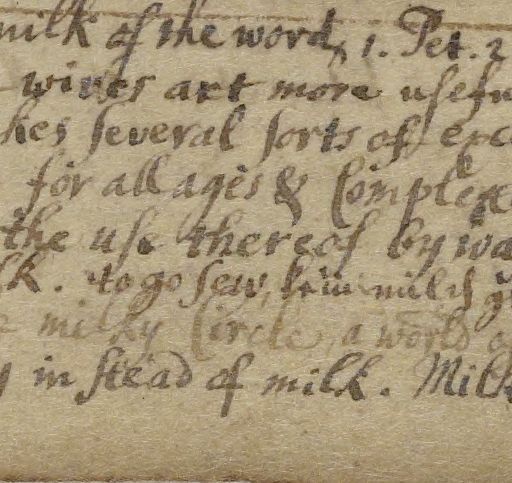 milk of the word, 1. Pet. 2
wives art more usefu
kes several sorts of exc
for all ages & Complex
the use thereof by wa
lk. to go sew, kiw milch
milky Circle, a world
in stead of milk. Milk